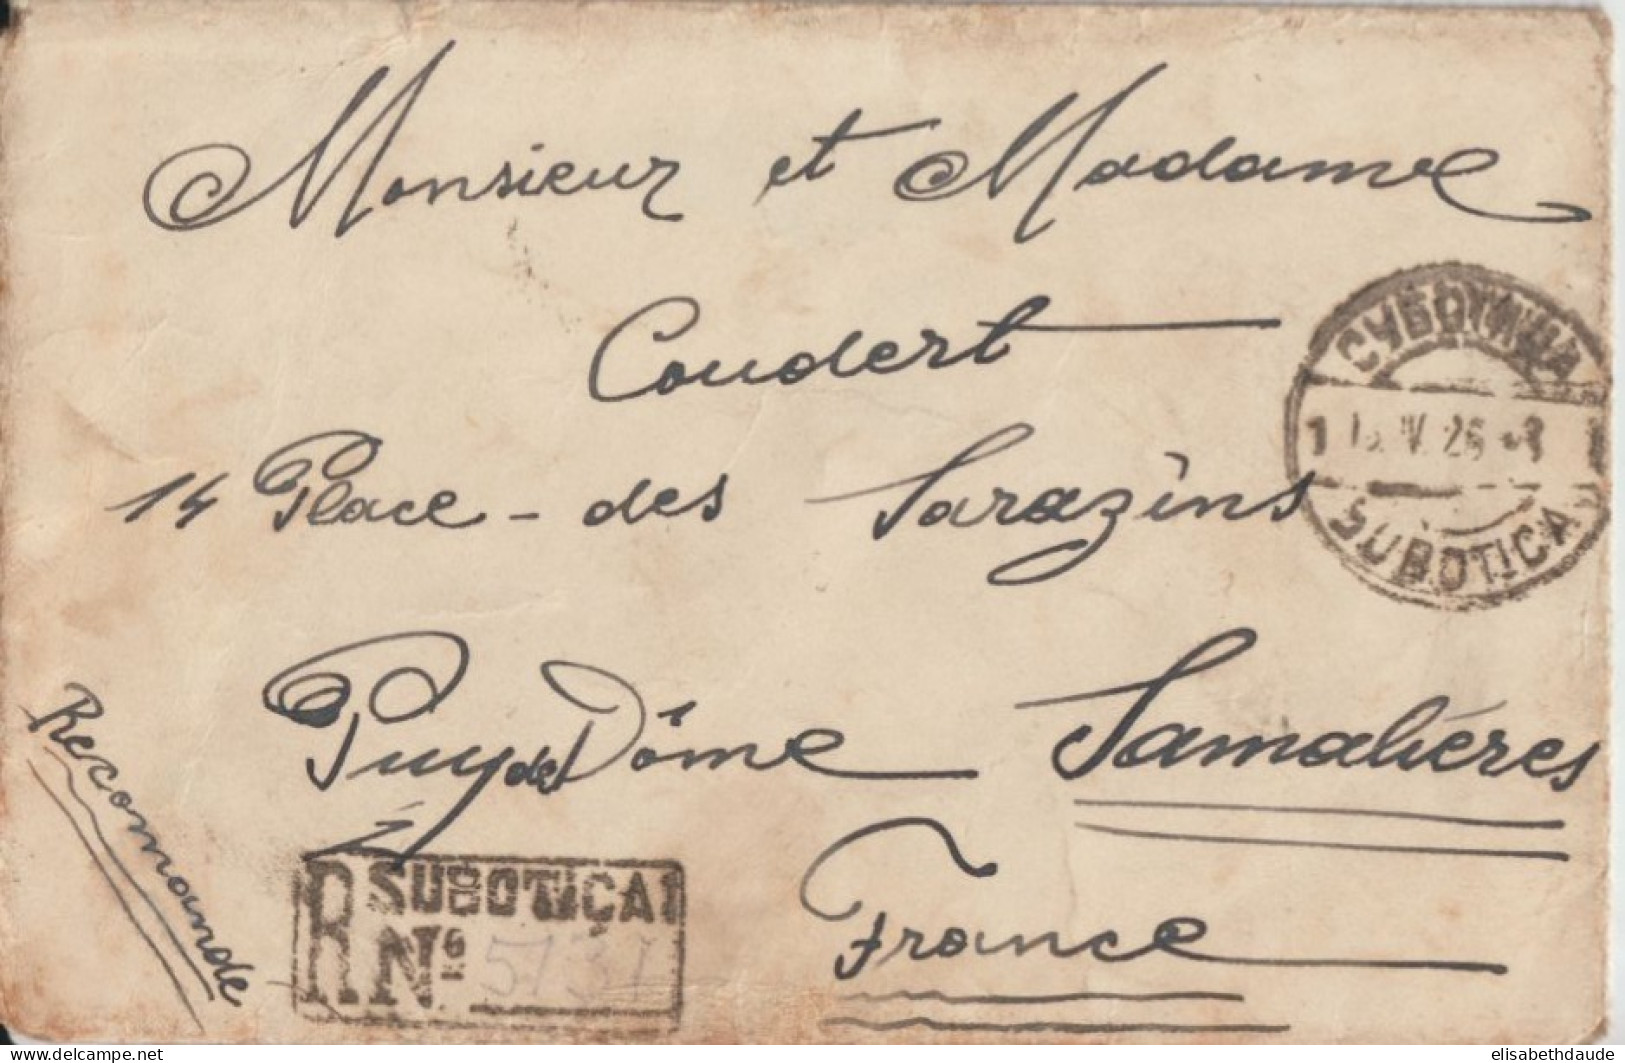 Monsieur et Madame
Coudert
14 Place - des Sarazins
Puy de Dôme Samalières
France
Recomande
СУБОТИЦА
1 IV. 26 - 1
SUBOTICA
R SUBOTICA 1
No 5737
elisabethdaude